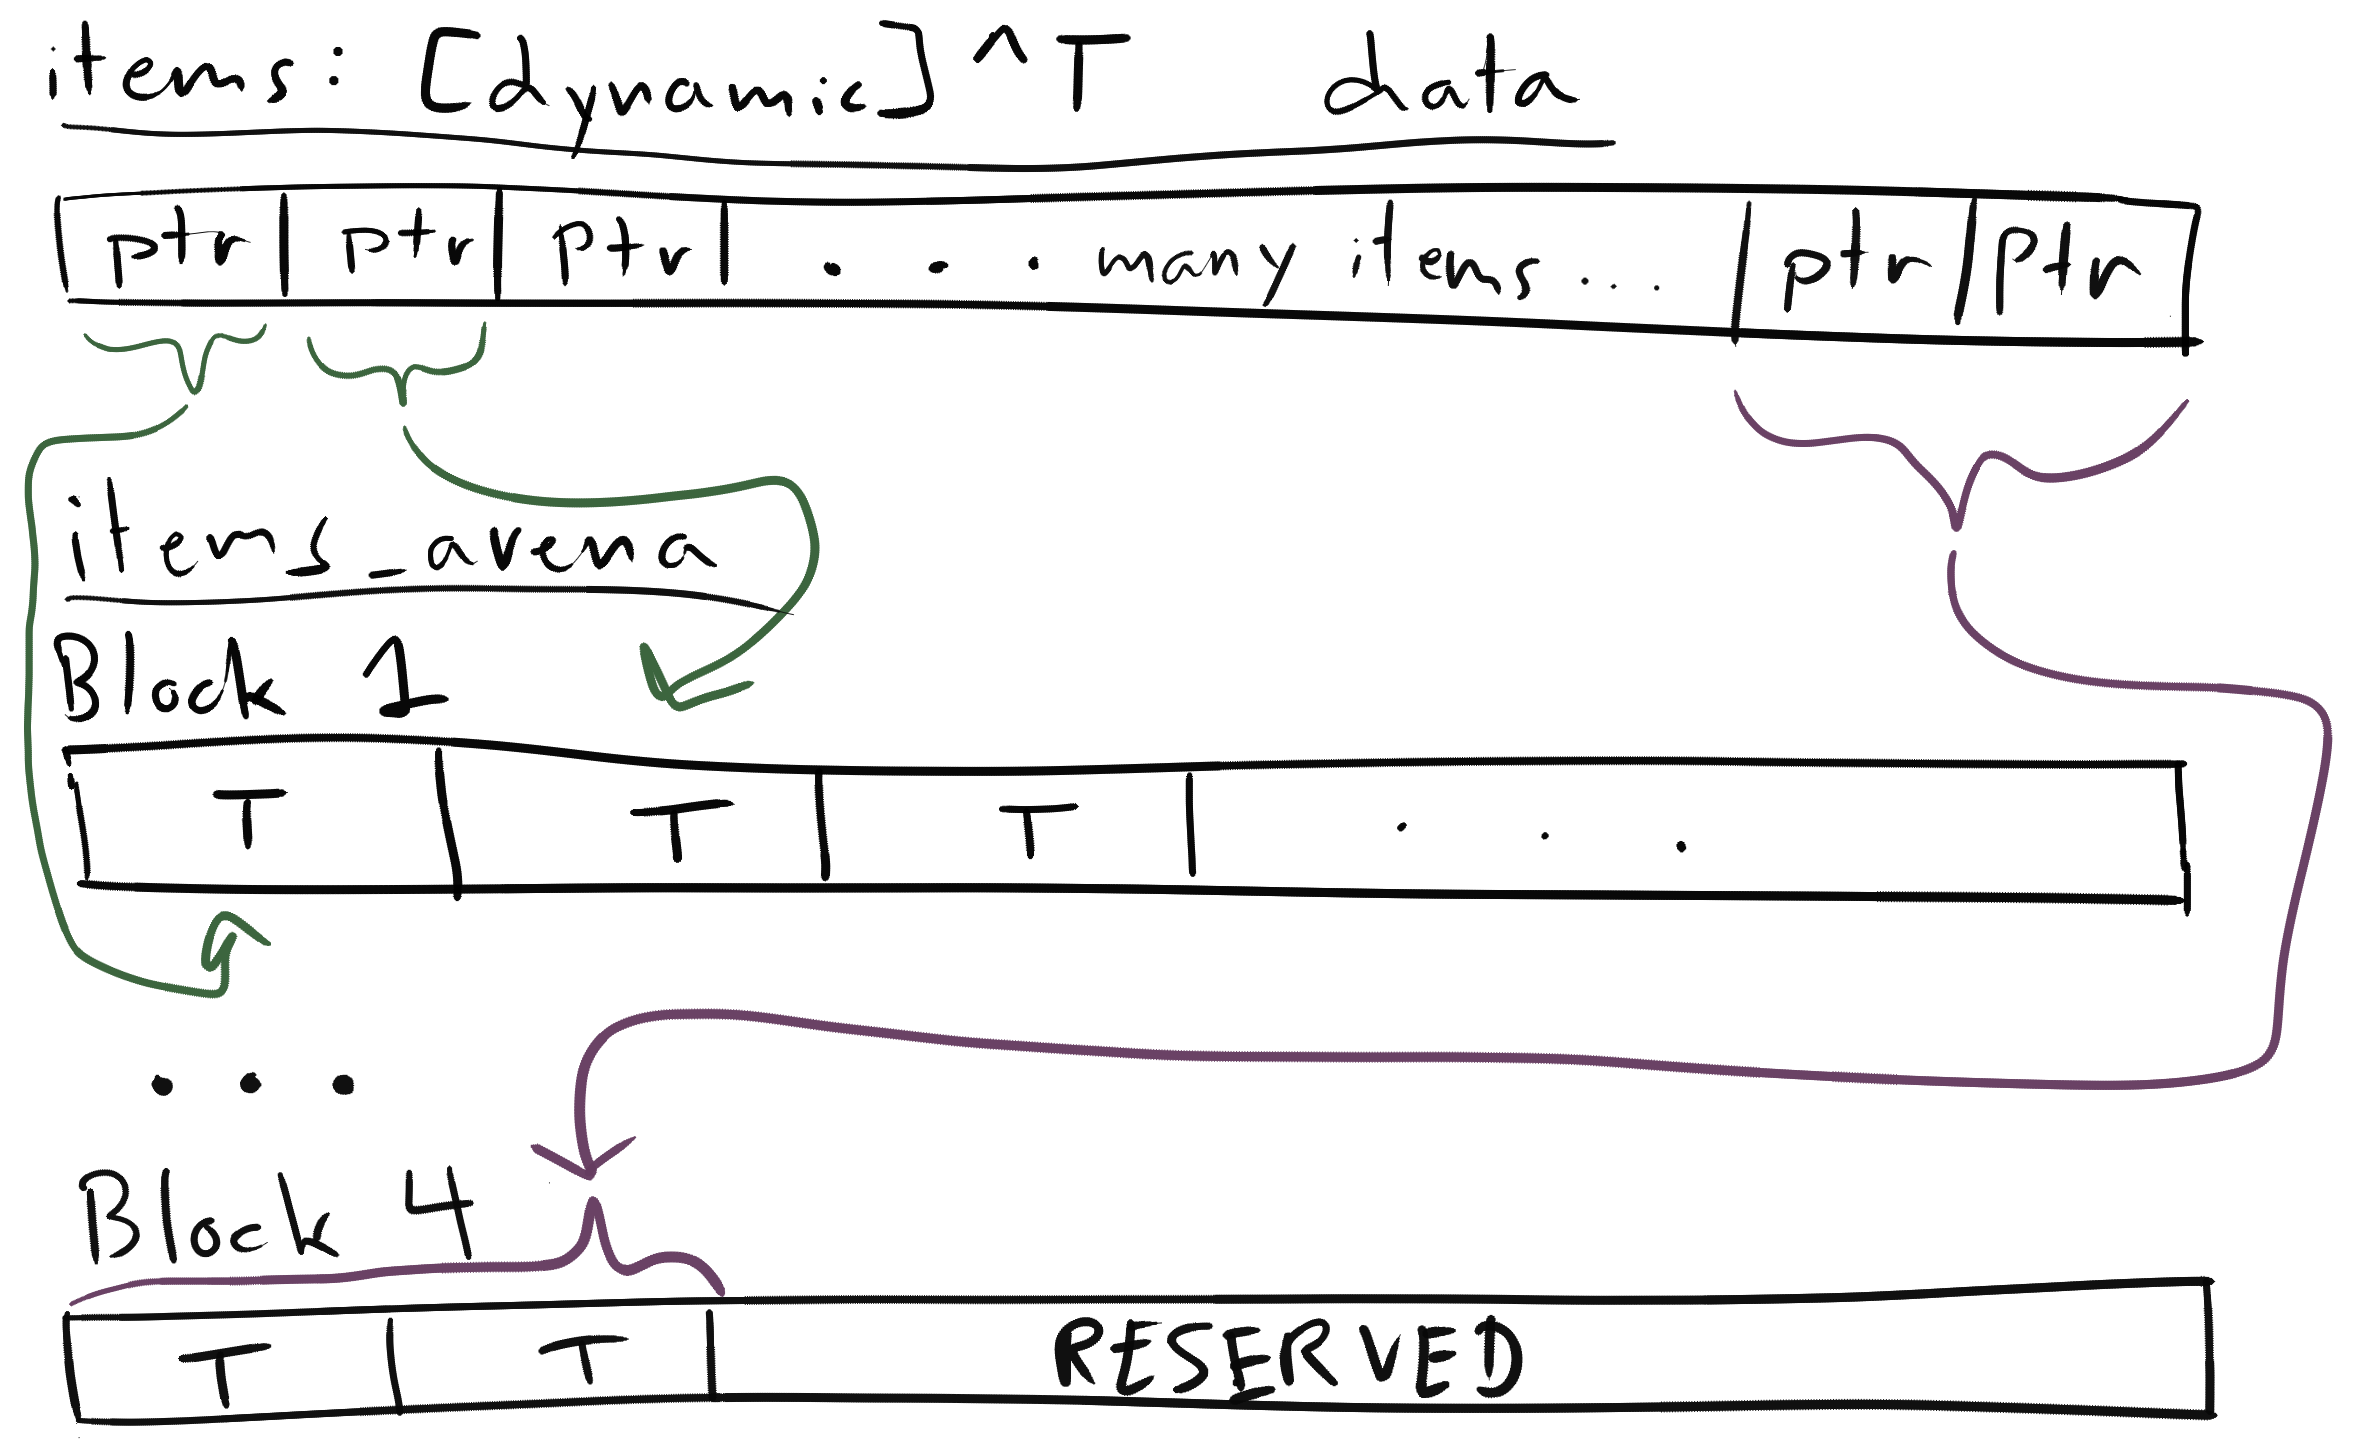 items: [dynamic]^T data
ptr ptr ptr ... many items ... ptr ptr
items_arena
Block 1
T T T ...
...
Block 4
T T RESERVED